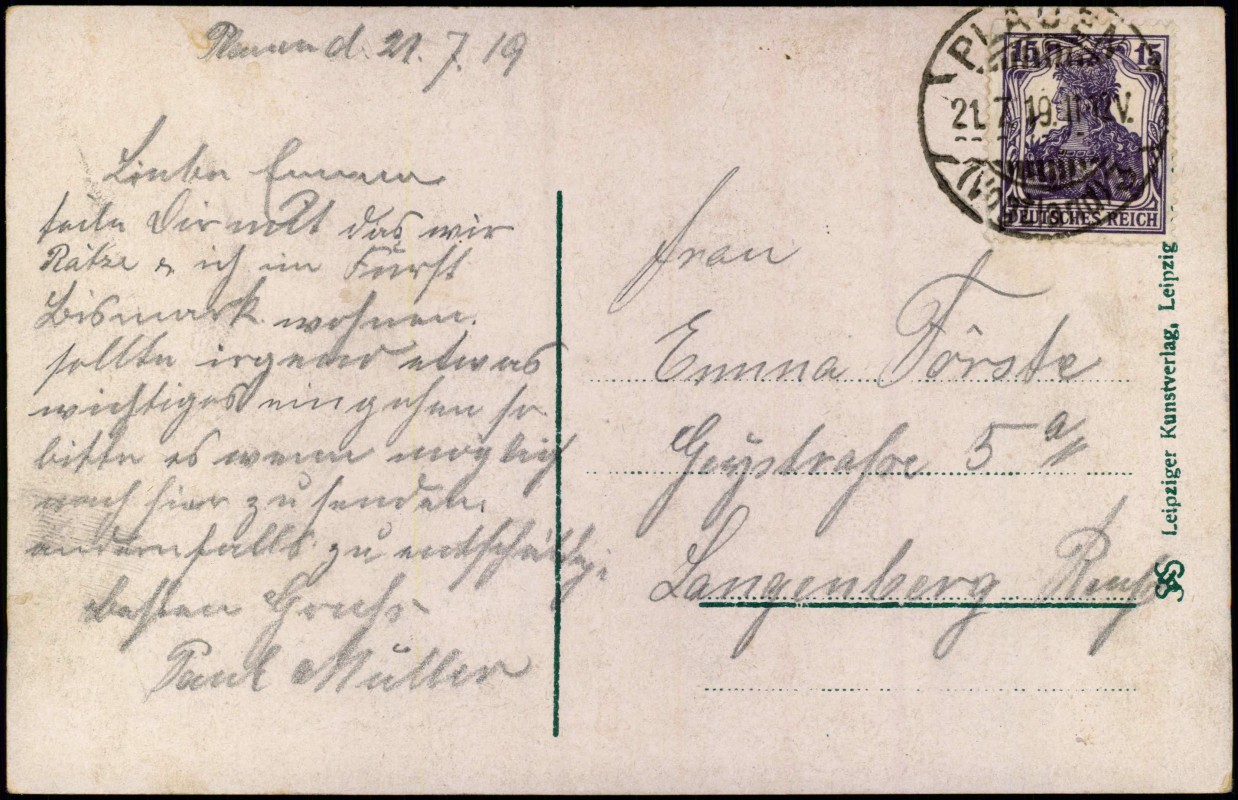 Plauen d. 21. 7. 19
Liebe Emma
teile Dir mit das wir
Rätze & ich im Fürst
Bismark wohnen.
sollte irgend etwas
wichtiges eingehen so
bitte es wenn möglich
nach hier zu senden.
andernfalls zu
besten Gruß
Paul Müller
Frau
Emma Förste
Geystraße 5 a/
Langenberg Reuß
PLAUEN
21. 7. 19. 11-12V.
(Vogtland)
15 15
DEUTSCHES REICH
Leipziger Kunstverlag, Leipzig